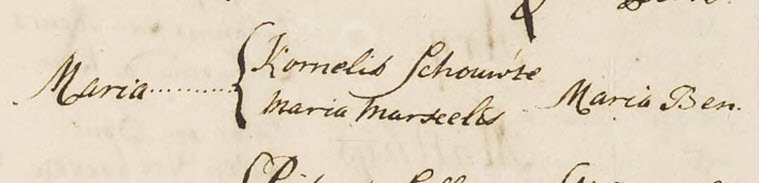 Maria .......... { Kornelis Schouwte
Maria Marseelis Maria Ben.